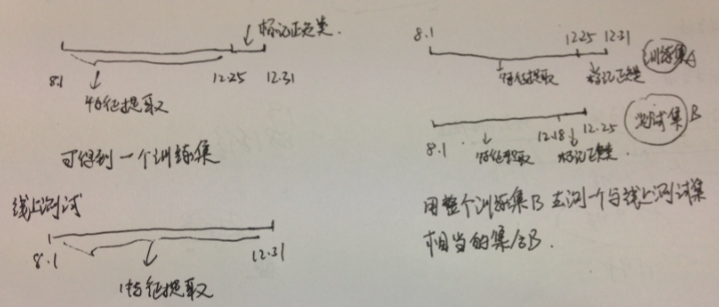 标记正负类.
8.1
12.25
12.31
特征提取
可得到一个训练集
线上测试
8.1
12.31
特征提取
8.1
12.25
12.31
训练集A
特征提取
标记正负类
8.1
12.18
12.25
测试集B
特征提取
标记正负类.
用整个训练集B去测一个与线上测试集
相当的集合B.